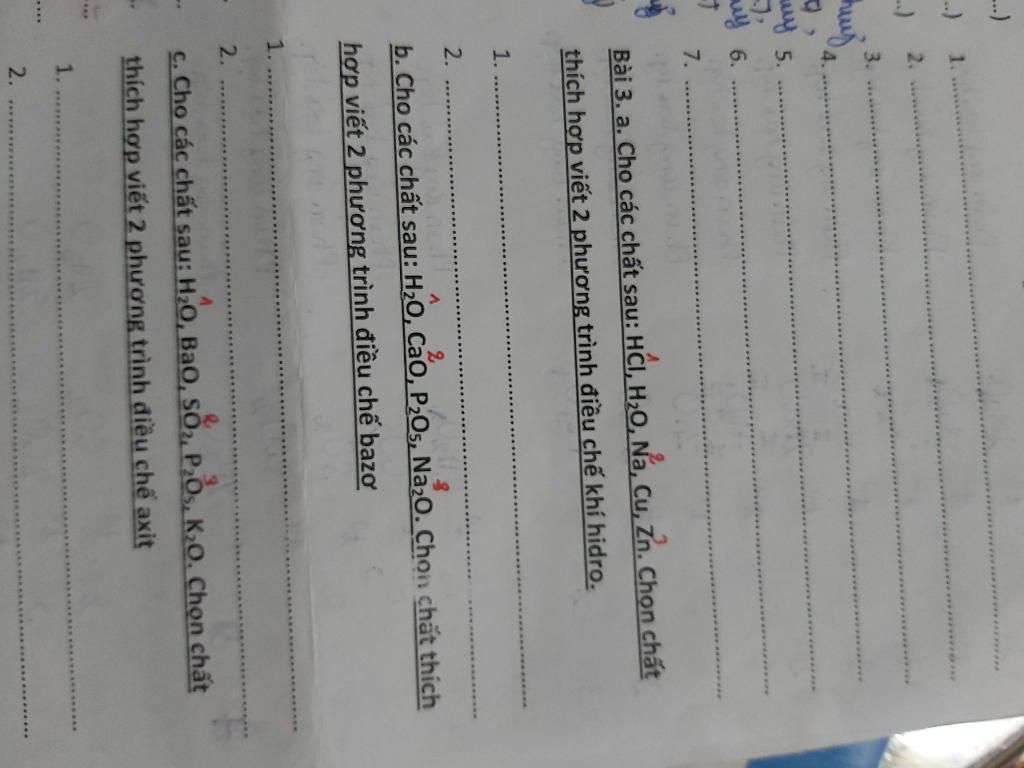 1. ........................
2. ........................
3. ........................
4. ........................
5. ........................
6. ........................
7. ........................
Bài 3. a. Cho các chất sau: HCl, H₂O, Na, Cu, Zn. Chọn chất
thích hợp viết 2 phương trình điều chế khí hidro.
1. ........................
2. ........................
b. Cho các chất sau: H₂O, CaO, P₂O₅, Na₂O. Chọn chất thích
hợp viết 2 phương trình điều chế bazơ
1. ........................
2. ........................
c. Cho các chất sau: H₂O, BaO, SO₂, P₂O₅, K₂O. Chọn chất
thích hợp viết 2 phương trình điều chế axit
1. ........................
2. ........................